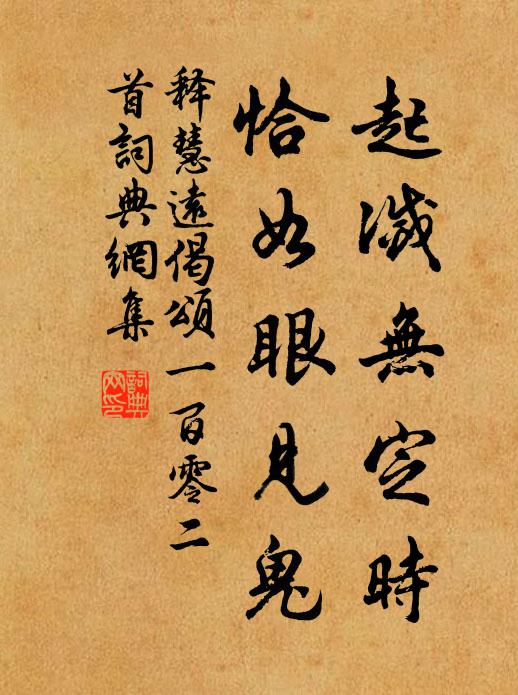 起滅無定時
恰如眼見鬼
释慧遠偈頌一百零二
首詞典網集
詞典網印